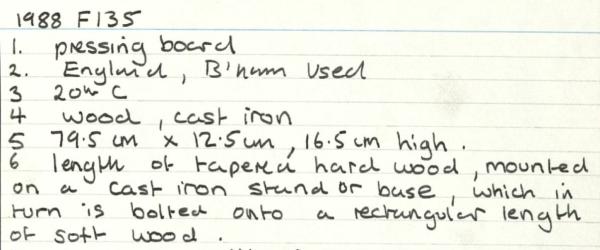 1988 F135
1. pressing board
2. England, B'ham Used
3 20th C
4 wood, cast iron
5 79.5 cm x 12.5 cm, 16.5 cm high.
6 length of tapered hard wood, mounted
on a cast iron stand or base, which in
turn is bolted onto a rectangular length
of soft wood.